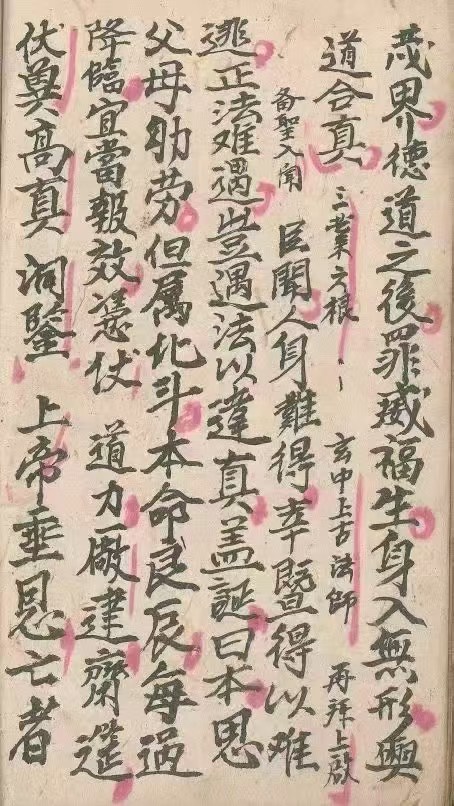 界德道之後罪威福生身入無形與
道合真 三業六根 玄中上古法師 再拜上啟
备聖入聞 臣聞人身難得幸暨得以难
逃正法难遇豈遇法以違真盖誕日本恩
父母助劳但属化斗本命良辰每過
降臨宜當報效慿伏 道力厰建齋筵
伏奠高真 洞鑒 上帝垂恩亡者